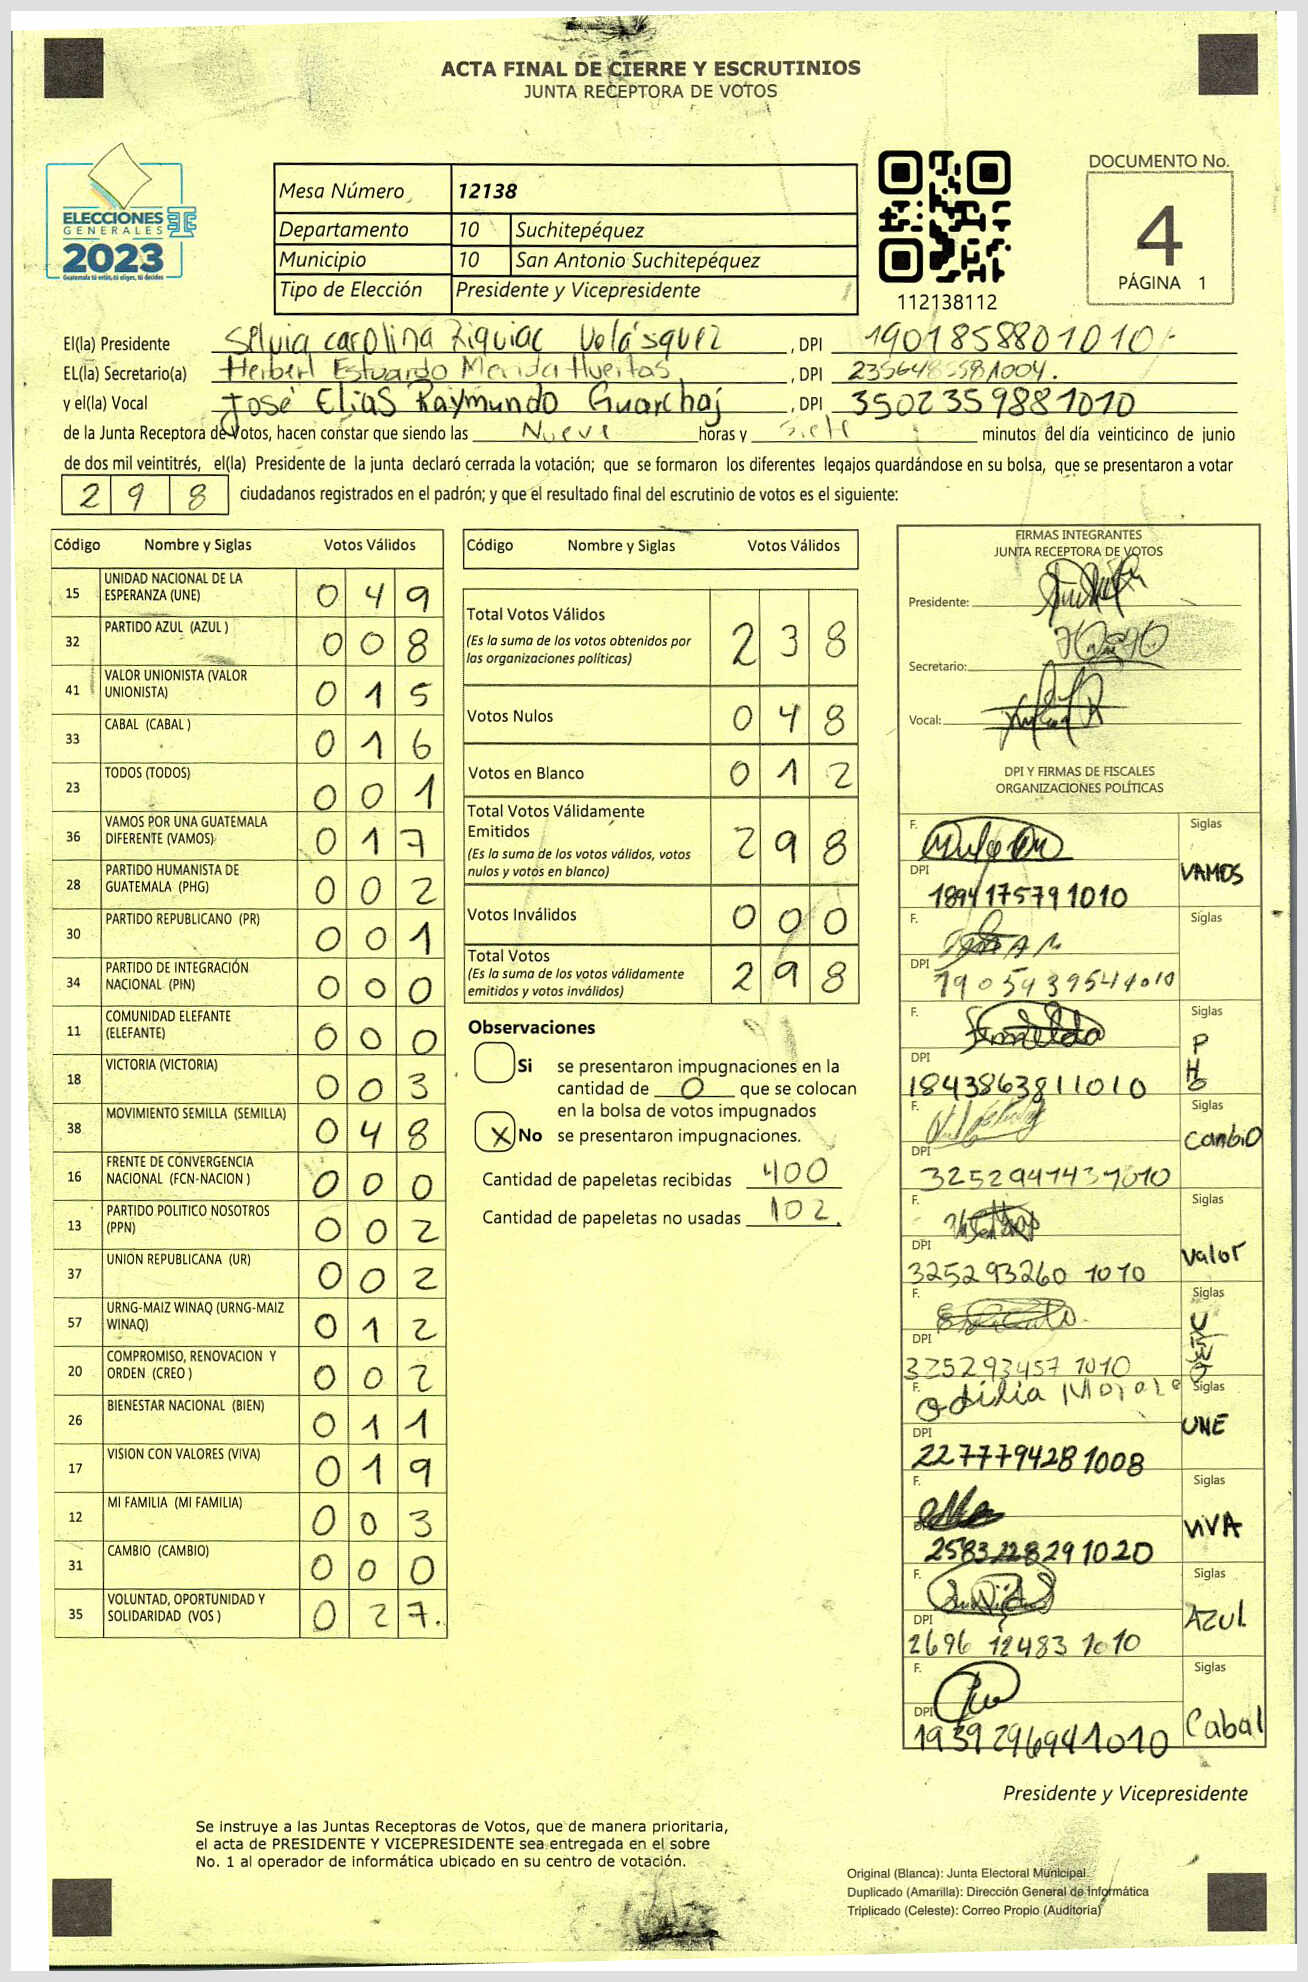 ACTA FINAL DE CIERRE Y ESCRUTINIOS
JUNTA RECEPTORA DE VOTOS
ELECCIONES
GENERALES
2023
Guatemala tú estás, tú eliges, tú decides
Mesa Número 12138
Departamento 10 Suchitepéquez
Municipio 10 San Antonio Suchitepéquez
Tipo de Elección Presidente y Vicepresidente
112138112
DOCUMENTO No.
4
PÁGINA 1
El(la) Presidente Silvia Carolina Ziquiac Velásquez , DPI 1901858801010
EL(la) Secretario(a) Herbert Estuardo Merida Huertas , DPI
y el(la) Vocal José Elias Raymundo Guarchaj , DPI 3502359881010
de la Junta Receptora de Votos, hacen constar que siendo las Nueve horas y Siete minutos del día veinticinco de junio
de dos mil veintitrés, el(la) Presidente de la junta declaró cerrada la votación; que se formaron los diferentes legajos guardándose en su bolsa, que se presentaron a votar
298 ciudadanos registrados en el padrón; y que el resultado final del escrutinio de votos es el siguiente:
Código Nombre y Siglas Votos Válidos
15 UNIDAD NACIONAL DE LA ESPERANZA (UNE) 049
32 PARTIDO AZUL (AZUL ) 008
41 VALOR UNIONISTA (VALOR UNIONISTA) 015
33 CABAL (CABAL ) 016
23 TODOS (TODOS) 001
36 VAMOS POR UNA GUATEMALA DIFERENTE (VAMOS) 017
28 PARTIDO HUMANISTA DE GUATEMALA (PHG) 002
30 PARTIDO REPUBLICANO (PR) 001
34 PARTIDO DE INTEGRACIÓN NACIONAL (PIN) 000
11 COMUNIDAD ELEFANTE (ELEFANTE) 000
18 VICTORIA (VICTORIA) 003
38 MOVIMIENTO SEMILLA (SEMILLA) 048
16 FRENTE DE CONVERGENCIA NACIONAL (FCN-NACION ) 000
13 PARTIDO POLITICO NOSOTROS (PPN) 002
37 UNION REPUBLICANA (UR) 002
57 URNG-MAIZ WINAQ (URNG-MAIZ WINAQ) 012
20 COMPROMISO, RENOVACION Y ORDEN (CREO ) 002
26 BIENESTAR NACIONAL (BIEN) 011
17 VISION CON VALORES (VIVA) 019
12 MI FAMILIA (MI FAMILIA) 003
31 CAMBIO (CAMBIO) 000
35 VOLUNTAD, OPORTUNIDAD Y SOLIDARIDAD (VOS ) 027.
Código Nombre y Siglas Votos Válidos
Total Votos Válidos 238
(Es la suma de los votos obtenidos por
las organizaciones políticas)
Votos Nulos 048
Votos en Blanco 012
Total Votos Válidamente
Emitidos 298
(Es la suma de los votos válidos, votos
nulos y votos en blanco)
Votos Inválidos 000
Total Votos 298
(Es la suma de los votos válidamente
emitidos y votos inválidos)
Observaciones
Si se presentaron impugnaciones en la
cantidad de 0 que se colocan
en la bolsa de votos impugnados
X No se presentaron impugnaciones.
Cantidad de papeletas recibidas 400
Cantidad de papeletas no usadas 102.
FIRMAS INTEGRANTES
JUNTA RECEPTORA DE VOTOS
Presidente:
Secretario:
Vocal:
DPI Y FIRMAS DE FISCALES
ORGANIZACIONES POLÍTICAS
F. Siglas
VAMOS
DPI 1894175791010
F. Siglas
DPI
F. Siglas
PHG
DPI 1843863811010
F. Siglas
Cambio
DPI
F. Siglas
Valor
DPI 3252932601010
F. Siglas
DPI 3252934571010
F. Odilia Siglas
UNE
DPI 2277794281008
F. Siglas
ViVA
DPI
F. Siglas
AZUL
DPI 2696124831010
F. Siglas
Cabal
DPI 1939296941010
Presidente y Vicepresidente
Se instruye a las Juntas Receptoras de Votos, que de manera prioritaria,
el acta de PRESIDENTE Y VICEPRESIDENTE sea entregada en el sobre
No. 1 al operador de informática ubicado en su centro de votación.
Original (Blanca): Junta Electoral Municipal.
Duplicado (Amarilla): Dirección General de Informática
Triplicado (Celeste): Correo Propio (Auditoría)